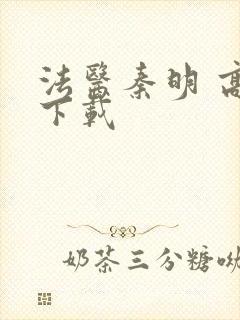 法醫秦明 高
下載
奶茶三分糖呦